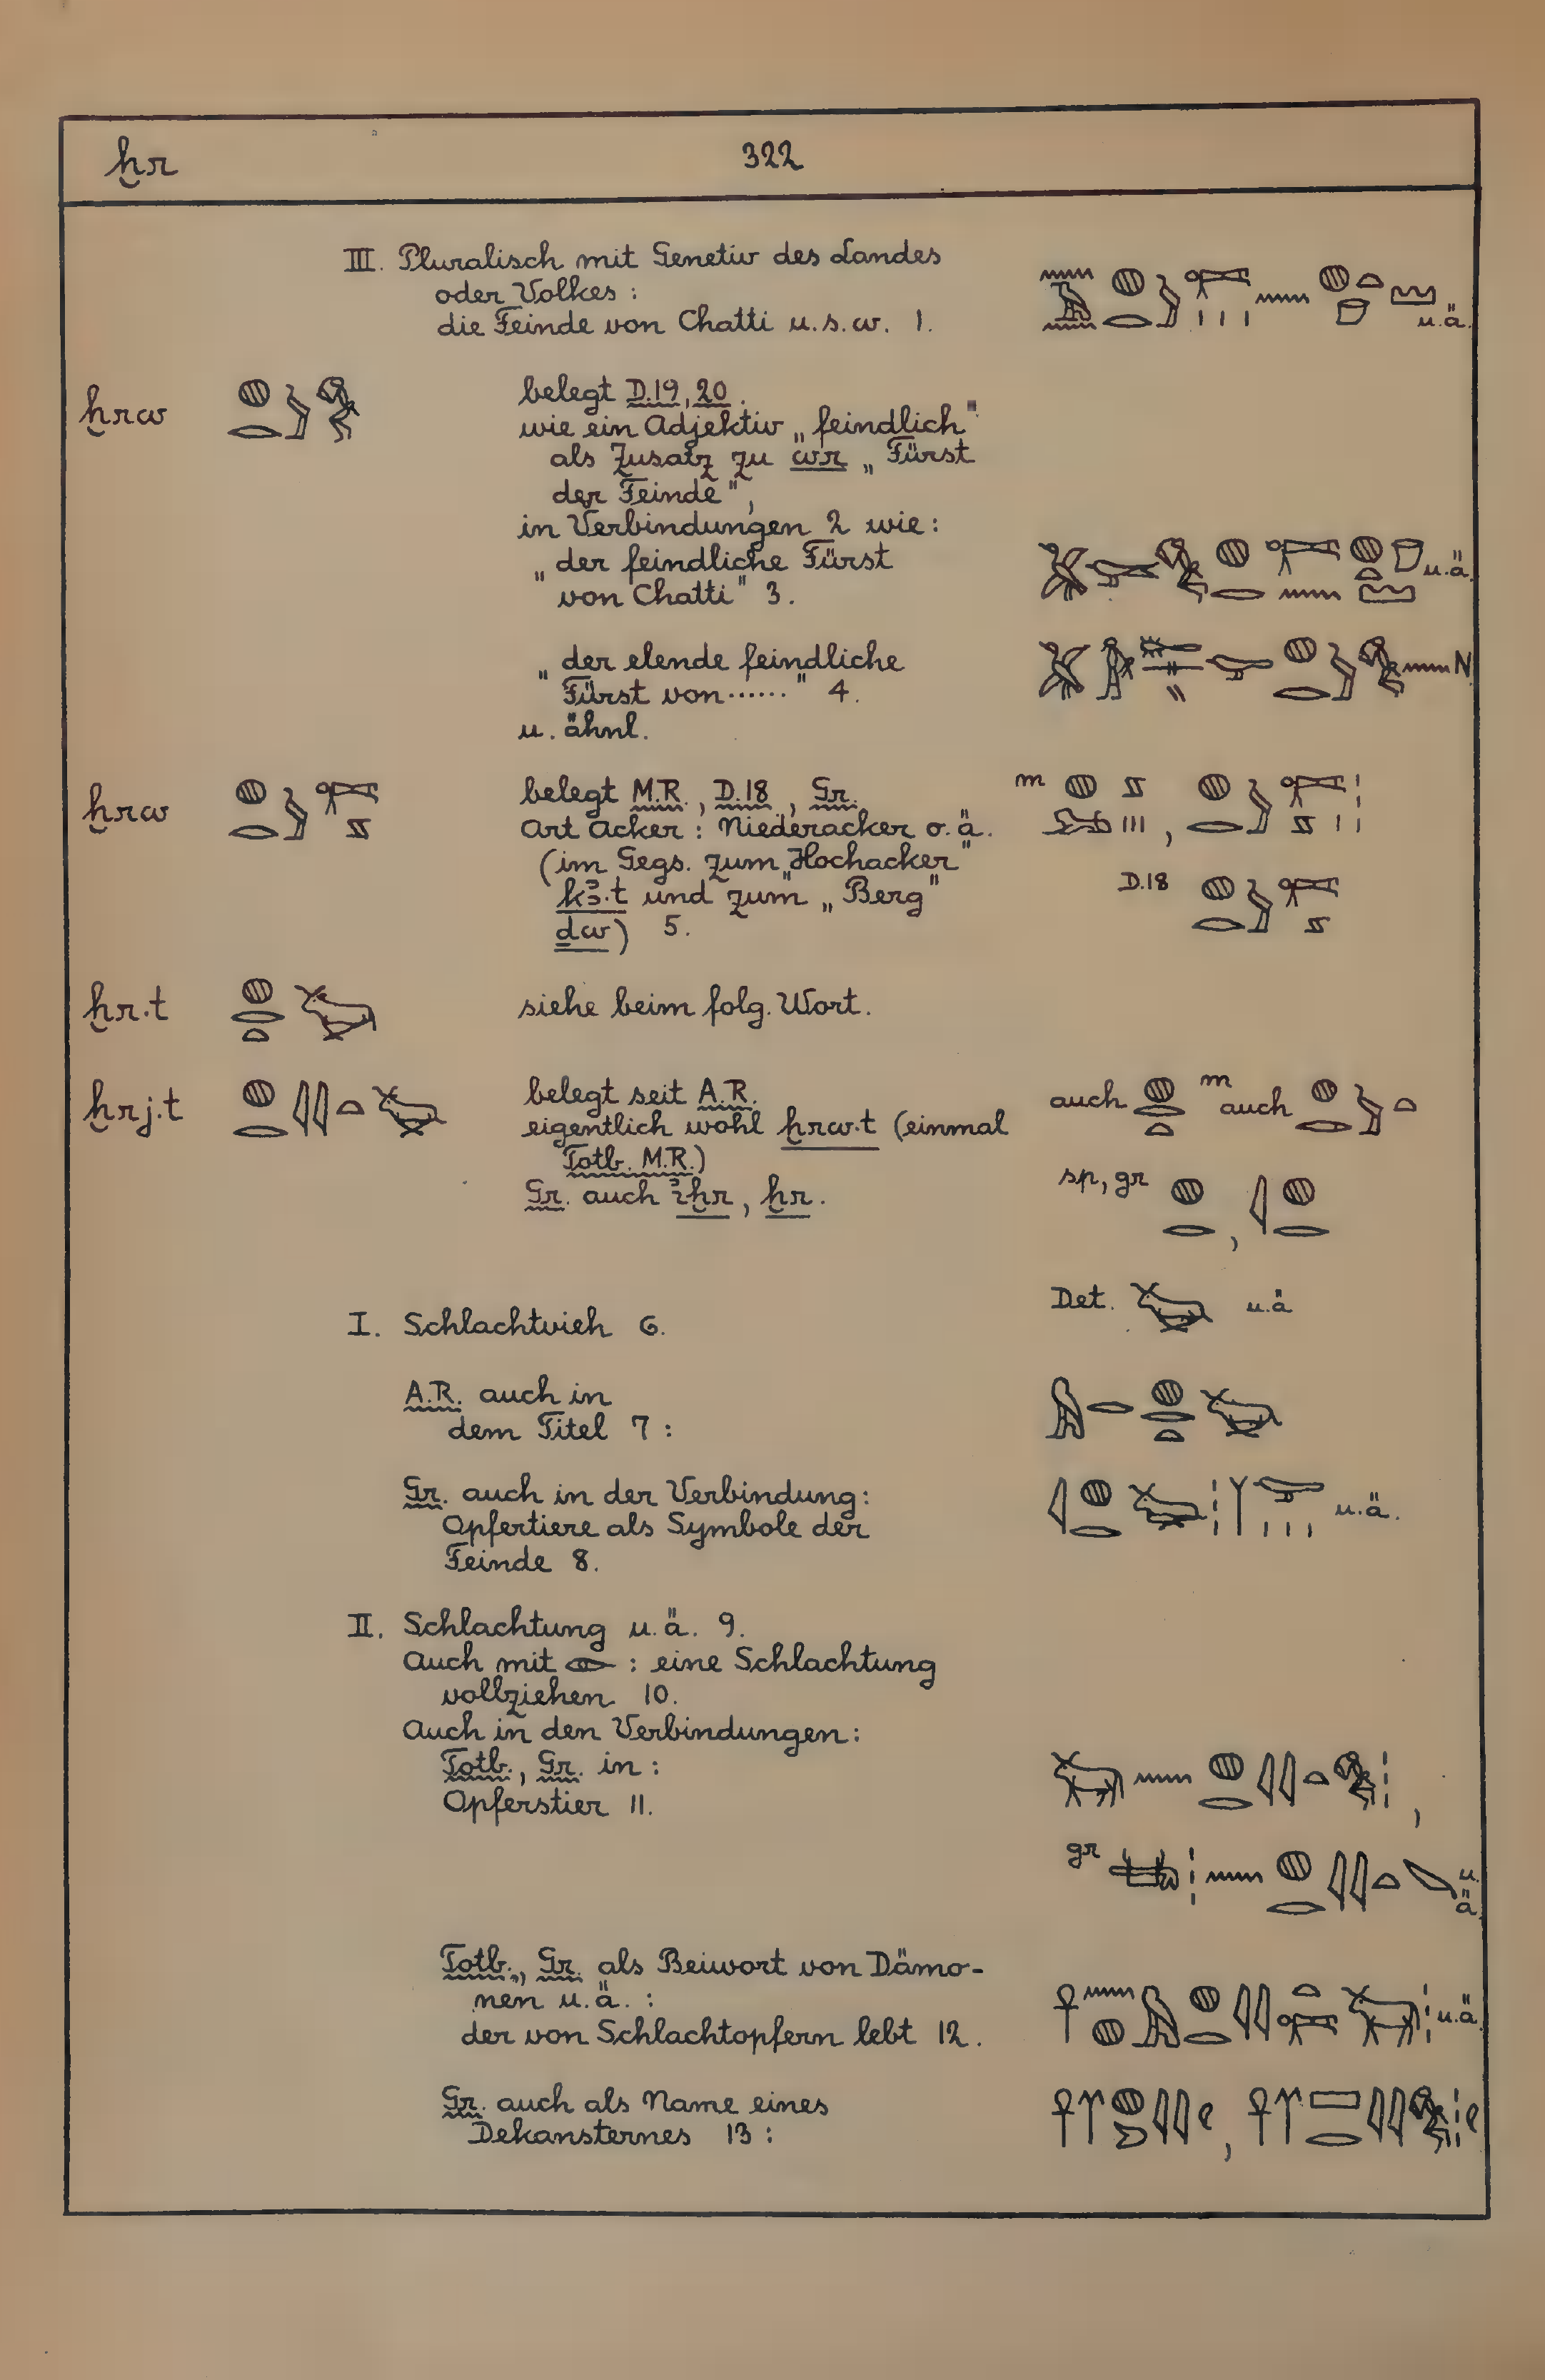 ḫr 322
III. Pluralisch mit Genetiv des Landes
oder Volkes :
die Feinde von Chatti u.s.w. 1.
u.ä.
ḫrw belegt D.19, 20.
wie ein Adjektiv „feindlich"
als Zusatz zu wr „Fürst
der Feinde",
in Verbindungen 2 wie:
„der feindliche Fürst
von Chatti" 3.
u.ä.
„der elende feindliche
Fürst von......" 4.
N.
u. ähnl.
ḫrw belegt M.R., D.18, Gr. m
Art Acker : Niederacker o.ä.
(im Gegs. zum „Hochacker"
kꜣ.t und zum „Berg" D.18
ḏw) 5.
ḫr.t siehe beim folg. Wort.
ḫrj.t belegt seit A.R. auch m auch
eigentlich wohl ḫrw.t (einmal
Totb. M.R.)
Gr. auch iḫr, ḫr. sp, gr
Det. u.ä
I. Schlachtvieh 6.
A.R. auch in
dem Titel 7 :
Gr. auch in der Verbindung: u.ä.
Opfertiere als Symbole der
Feinde 8.
II. Schlachtung u.ä. 9.
Auch mit : eine Schlachtung
vollziehen 10.
Auch in den Verbindungen:
Totb., Gr. in :
Opferstier 11.
gr u.
ä.
Totb., Gr. als Beiwort von Dämo-
nen u.ä. : u.ä.
der von Schlachtopfern lebt 12.
Gr. auch als Name eines
Dekansternes 13 :